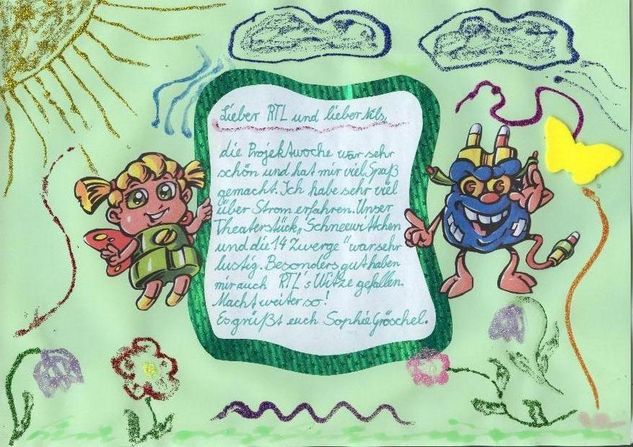 Lieber RTL und lieber Nils,
die Projektwoche war sehr
schön und hat mir viel Spaß
gemacht. Ich habe sehr viel
über Strom erfahren. Unser
Theaterstück, "Schneewittchen
und die 14 Zwerge" war sehr
lustig. Besonders gut haben
mir auch RTL's Witze gefallen.
Macht weiter so!
Es grüßt euch Sophie Gröschel.